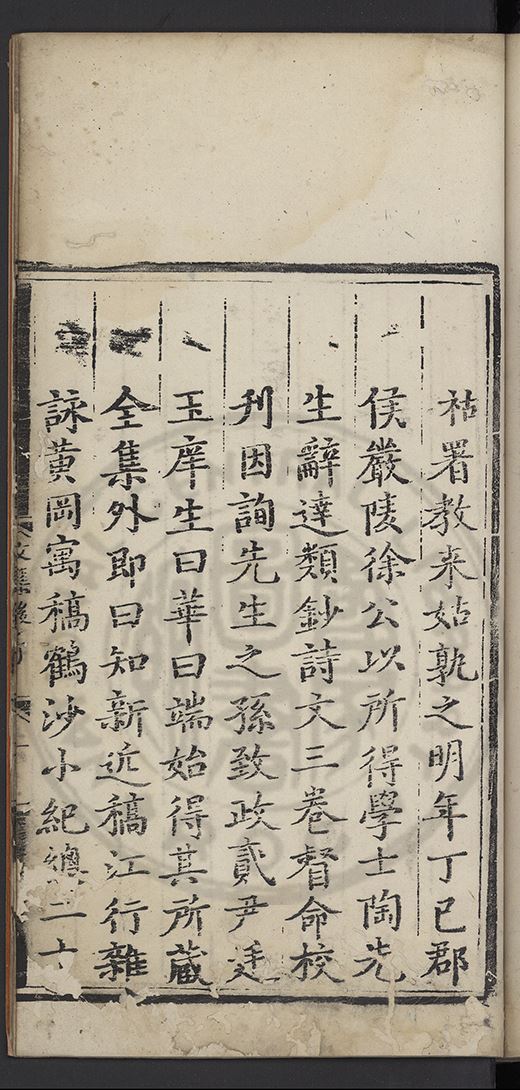 祜署教来姑孰之明年丁巳郡
侯嚴陵徐公以所得學士陶先
生辭達類鈔詩文三卷督命校
刋因詢先生之孫致政貳尹廷
玉庠生曰華曰端始得其所蔵
全集外即曰知新近稿江行雜
詠黃岡寓稿鶴沙小紀總二十
文集後